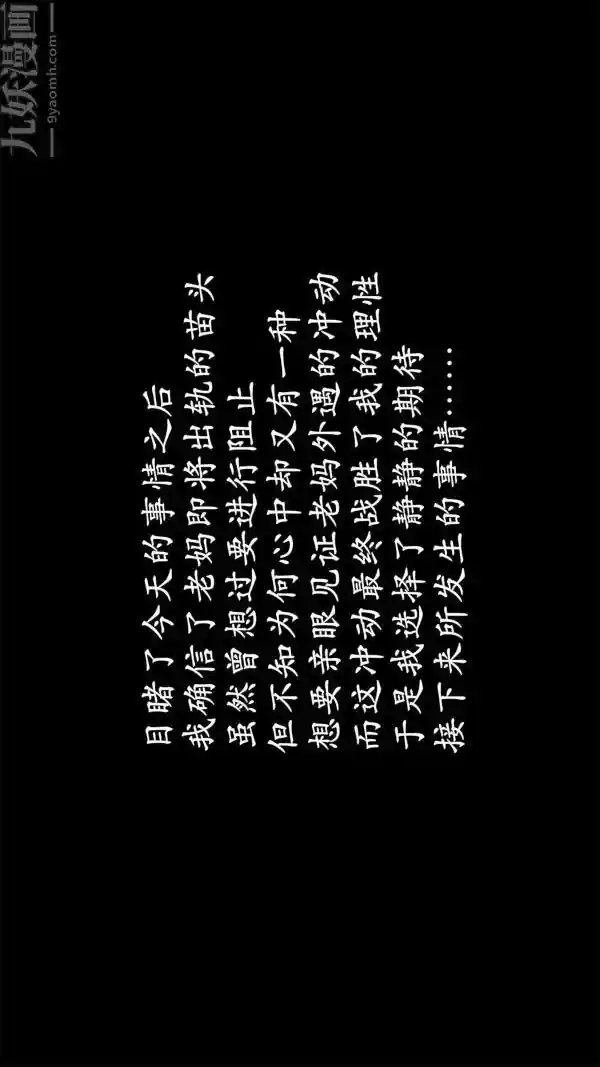 九妖漫画
9yaomh.com
目睹了今天的事情之后
我确信了老妈即将出轨的苗头
虽然曾想过要进行阻止
但不知为何心中却又有一种
想要亲眼见证老妈外遇的冲动
而这冲动最终战胜了我的理性
于是我选择了静静的期待
接下来所发生的事情……